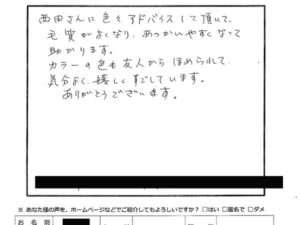 西田さんに色々アドバイスして頂いて、
毛質がよくなり、あつかいやすくなって
助かります。
カラーの色も友人からほめられて、
気分よく、嬉しくすごしています。
ありがとうございます。
※ あなた様の声を、ホームページなどでご紹介してもよろしいですか？ □はい □匿名で □ダメ
お 名 前